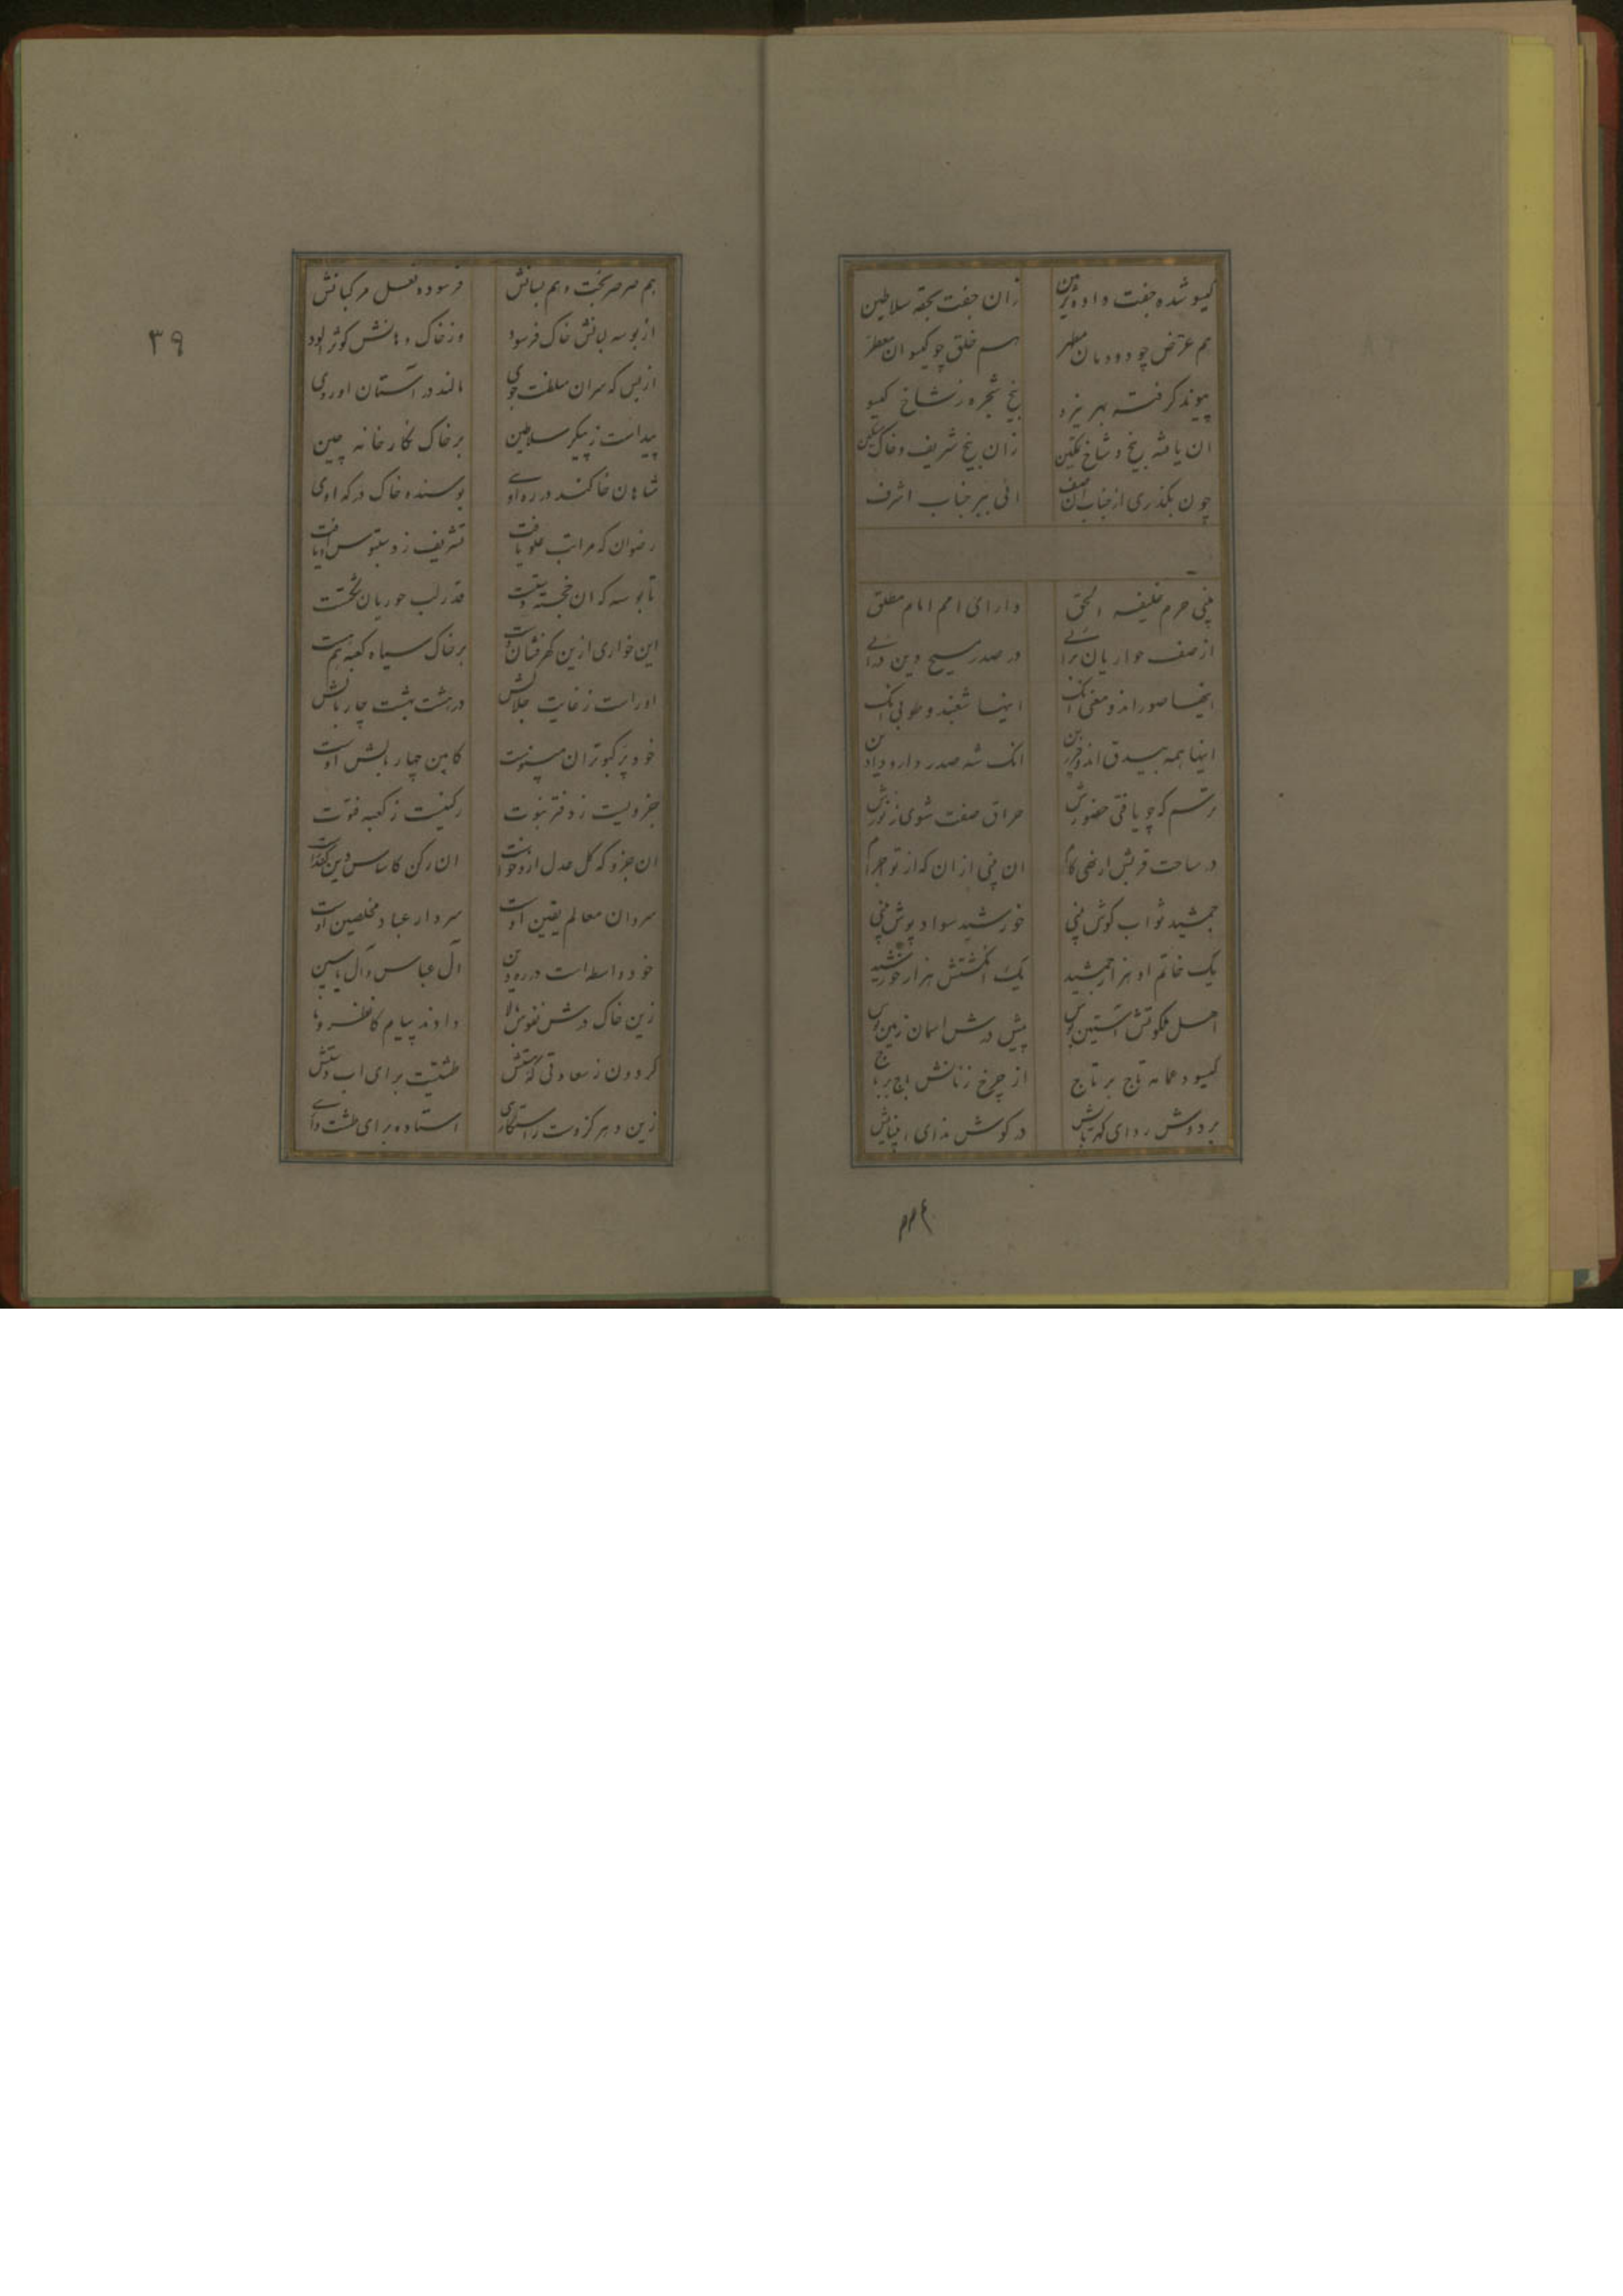 گیسو شده جفت و اده زمین زان جفت بحقه سلاطین
هم عرض چو دودمان مطهر هم خلق چو گیسوان معطر
پیوند گرفته بهر یزد بیخ شجره ز شاخ گیسو
ان یافته بیخ و شاخ تمکین زان بیخ شریف و خاک
چون بگذری از جناب انصف ائی ببر جناب اشرف
بینی حرم خلیفه الحق دارای امم امام مطلق
از صف حواریان برائے در صدر مسیح دین درائے
اینها صوراند و معنی انک اینها شغبند و طوبی انک
اینها همه بیدق اند و فرزین انک شه صدر دار و دادین
ترسم که چو یافتی حضورش حراق صفت شوی ز نورش
در ساحت قربش ار نهی کام ان بینی از ان که از تو اجرام
جمشید ثواب کوش بینی خورشید سواد پوش بینی
یک خاتم او هزار جمشید یک انگشتش هزار خورشید
اهل ملکوتش استین بوس پیش درش اسمان زمین بوس
گیسو و عمامه تاج بر تاج از چرخ زنانش باج بر باج
بر دوش ردای کهربایش در کوش ندای انبیایش
۳۹
هم صرصر تخت و هم بسانش فرسوده نعل مرکبانش
از بوسه لبانش خاک فرسود وز خاک دهانش کوثر الود
از بس که سران سلطنت جوی مالند در آستان او روی
پیداست ز پیکر سلاطین بر خاک نگارخانه چین
شاهان خاکند در ره اوے بوسنده خاک درکه اوی
رضوان که مراتب علو یافت تشریف ز دستبوس او یافت
تا بوسه که ان خجسته دستست قدر لب حوریان شکست
این خواری ازین گهرفشان دست بر خاک سیاه کعبه هم هست
اوراست ز غایت جلالش در هشت بهشت چار بالش
خود پر کبوتران مینوست کاین چهار بالش اوست
جزویست ز دفتر نبوت رکنیست ز کعبه فتوت
ان جزو که کل عدل ازو خواست ان رکن کاساس دین
سردان معالم یقین اوست سردار عباد مخلصین اوست
خود واسطه است در ره دین آل عباس و آل یاسین
زین خاک درش نفوس والا دادند پیام کانظرونا
کردون ز سعادتی که هستش طشتیست برای اب دستش
زین و هر کزوست راستگاری استاده برای طشت